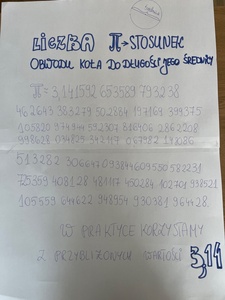 LICZBA π → STOSUNEK
OBWODU KOŁA DO DŁUGOŚCI JEGO ŚREDNICY
π = 3,141592 653589 793238
462643 383279 502884 197169 399375
105820 974944 592307 816406 2862208
998628 034825 342117 067982 148086
513282 306647 09384460955058 2231
725359 408128 481117 450284 102701 938521
105559 644622 948954 930381 964428
W PRAKTYCE KORZYSTAMY
Z PRZYBLIŻONYCH WARTOŚCI 3,14